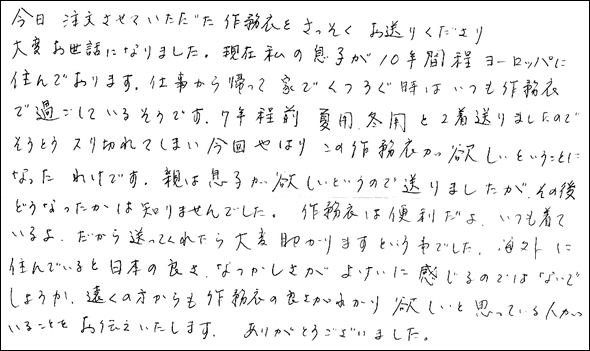 今日 注文させていただだた作務衣をさっそくお送りくださり
大変お世話になりました。現在私の息子が10年間程ヨーロッパに
住んであります。仕事から帰って家でくつろぐ時はいつも作務衣
で過ごしているそうです。7年程前 夏用、冬用と2着送りましたので
そうとうスリ切れてしまい今回やはりこの作務衣が欲しいということに
なったわけです。親は息子が欲しいというので送りましたが、その後
どうなったかは知りませんでした。作務衣は便利だよ、いつも着て
いるよ、だから送ってくれたら大変助かりますという事でした。海外に
住んでいると日本の良さ、なつかしさがよけいに感じるのではないで
しょうか。遠くの方からも作務衣の良さがわかり欲しいと思っている人が
いることをお伝えいたします。ありがとうございました。